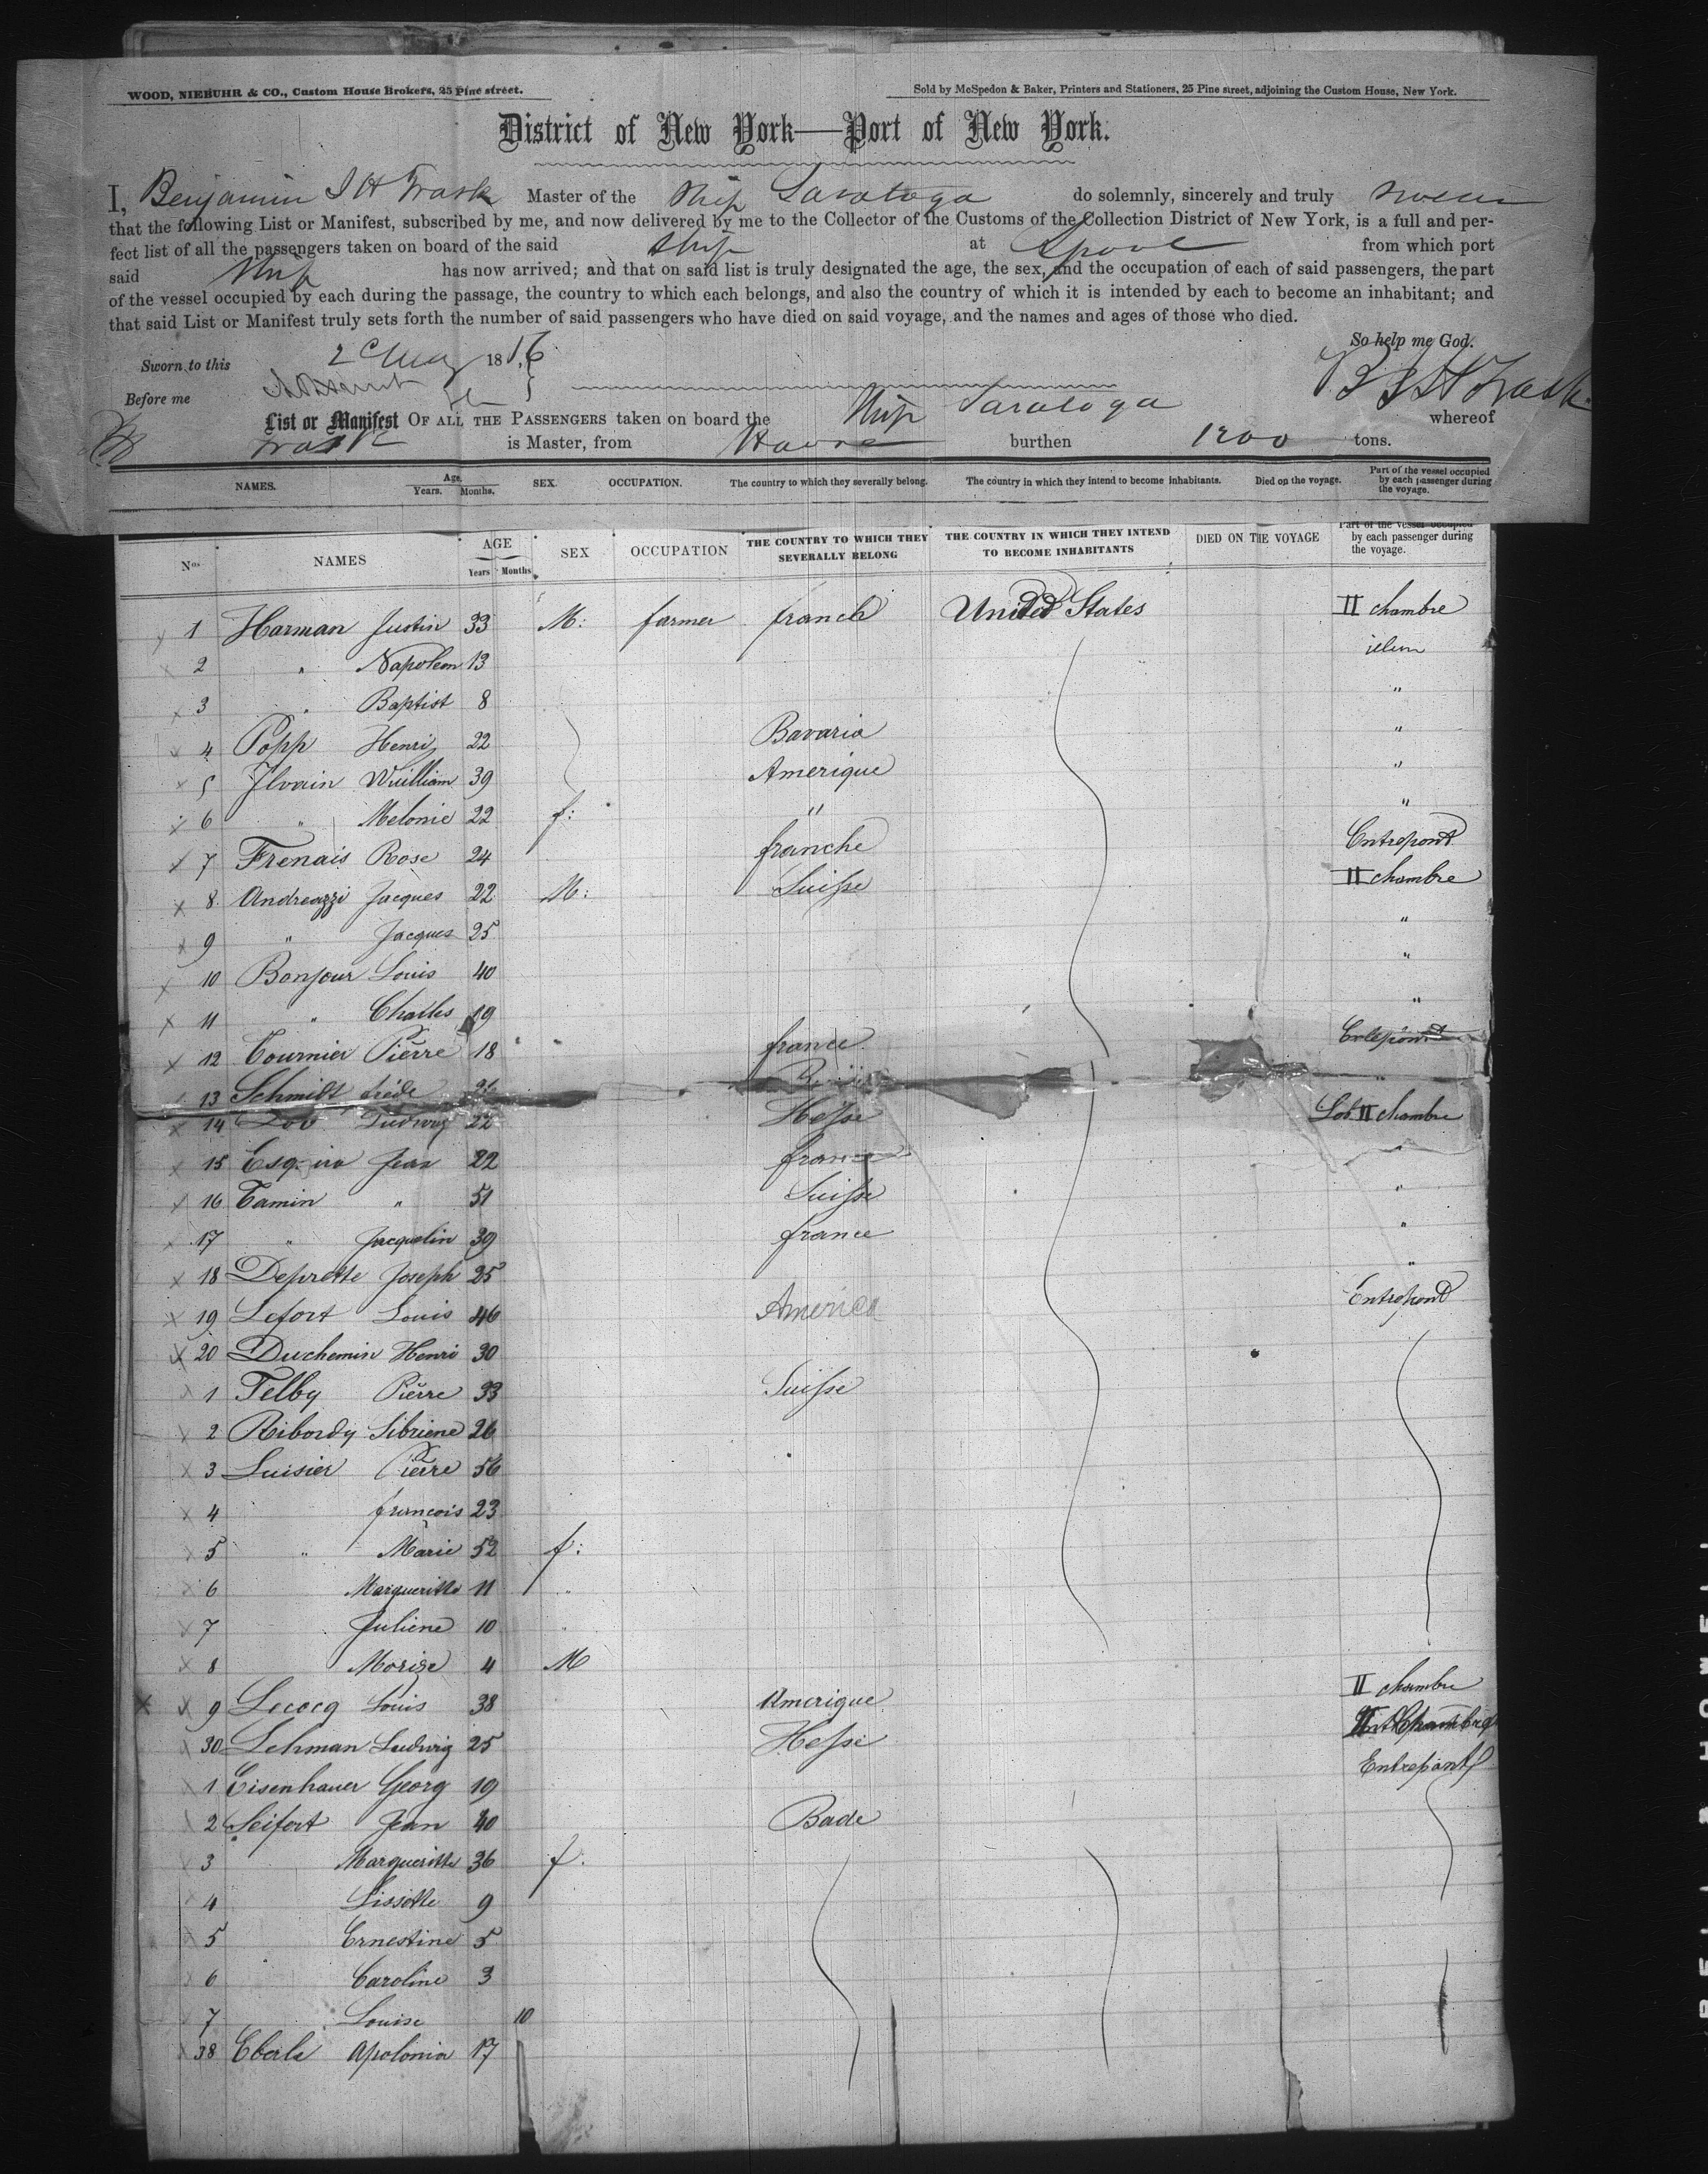 WOOD, NIEBUHR & CO., Custom House Brokers, 25 Pine street.
Sold by McSpedon & Baker, Printers and Stationers, 25 Pine street, adjoining the Custom House, New York.
District of New York—Port of New York.
I, Benjamin I H Trask Master of the Ship Saratoga do solemnly, sincerely and truly
that the following List or Manifest, subscribed by me, and now delivered by me to the Collector of the Customs of the Collection District of New York, is a full and per-
fect list of all the passengers taken on board of the said Ship at from which port
said Ship has now arrived; and that on said list is truly designated the age, the sex, and the occupation of each of said passengers, the part
of the vessel occupied by each during the passage, the country to which each belongs, and also the country of which it is intended by each to become an inhabitant; and
that said List or Manifest truly sets forth the number of said passengers who have died on said voyage, and the names and ages of those who died.
So help me God.
Sworn to this 2 18
B I H Trask
Before me
List or Manifest OF ALL THE PASSENGERS taken on board the Ship Saratoga whereof
Trask is Master, from Havre burthen 1200 tons.
NAMES. Age. Years. Months. SEX. OCCUPATION. The country to which they severally belong. The country in which they intend to become inhabitants. Died on the voyage. Part of the vessel occupied by each passenger during the voyage.
Nos NAMES AGE Years Months SEX OCCUPATION THE COUNTRY TO WHICH THEY SEVERALLY BELONG THE COUNTRY IN WHICH THEY INTEND TO BECOME INHABITANTS DIED ON THE VOYAGE Part of the vessel occupied by each passenger during the voyage.
1 Harman Justin 33 M: farmer United States II chambre
2 " Napoleon 13 idem
3 " Baptist 8 "
4 Popp Henri 22 Bavaria "
5 Wuilliam 39 Amerique "
6 " Melonie 22 f: " "
7 Frenais Rose 24 franche Entrepont
8 Andreazzi Jacques 22 M: Suisse II chambre
9 " Jacques 25 "
10 Bonjour Louis 40 "
11 " Charles 19 "
12 Tournier Pierre 18 france
13 Schmidt "
14 Ludwig 22 Hesse II chambre
15 Jean 22 france "
16 Tamin " 51 Suisse "
17 " Jacquelin 39 france "
18 Deprette Joseph 25 "
19 Lefort Louis 46 America Entrepont
20 Duchemin Henri 30
1 Felby Pierre 33 Suisse
2 Ribordy Sibriene 26
3 Luisier Pierre 56
4 francois 23
5 " Marie 52 f:
6 Margueritte 11 "
7 Juliene 10 "
8 Morize 4 M
9 Lecocq Louis 38 Amerique II chambre
30 Lehman Ludwig 25 Hesse
1 Eisenhauer Georg 19 Entrepont
2 Seifert Jean 40 Bade
3 Margueritte 36 f.
4 Lissette 9
5 Ernestine 5
6 Caroline 3
7 Louise 10
38 Eberle Apolonia 17